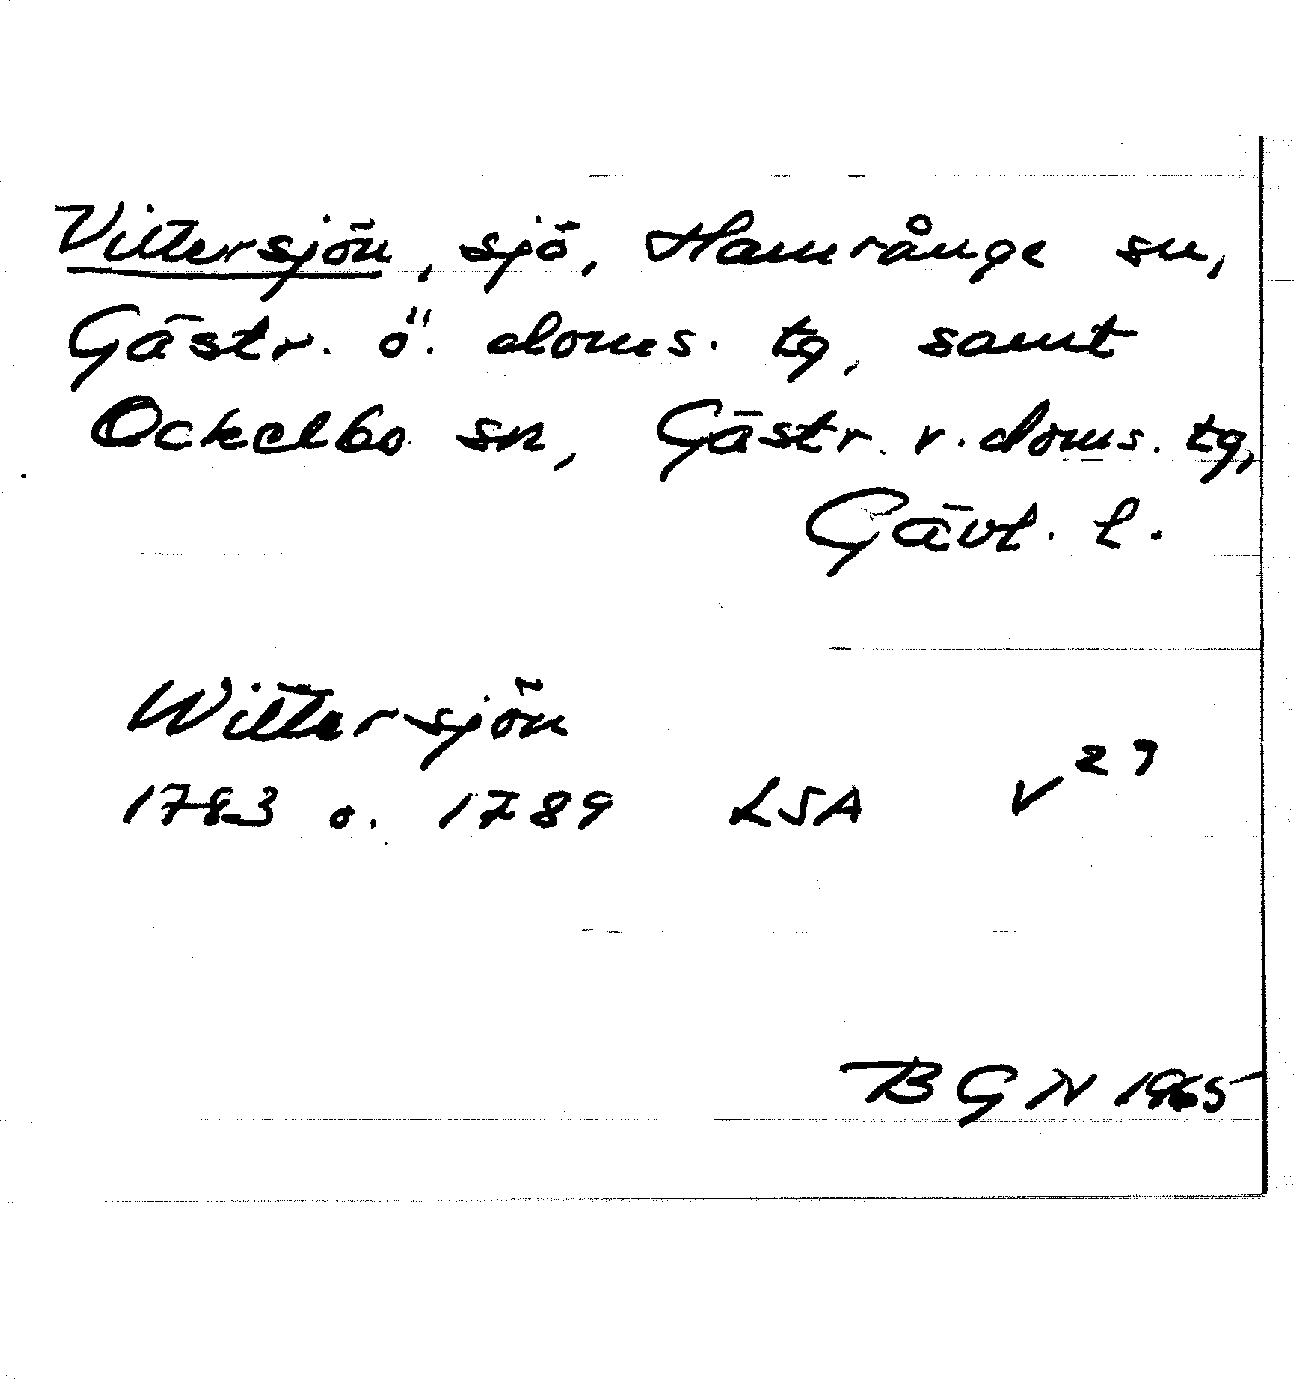 Vittersjön, sjö, Hamrånge sn,
Gästr. ö. doms. tg, samt
Ockelbo sn, Gästr. v. doms. tg,
Gävl. l.
Wittersjön
1783 o. 1789 LSA V 27
BGN 1965